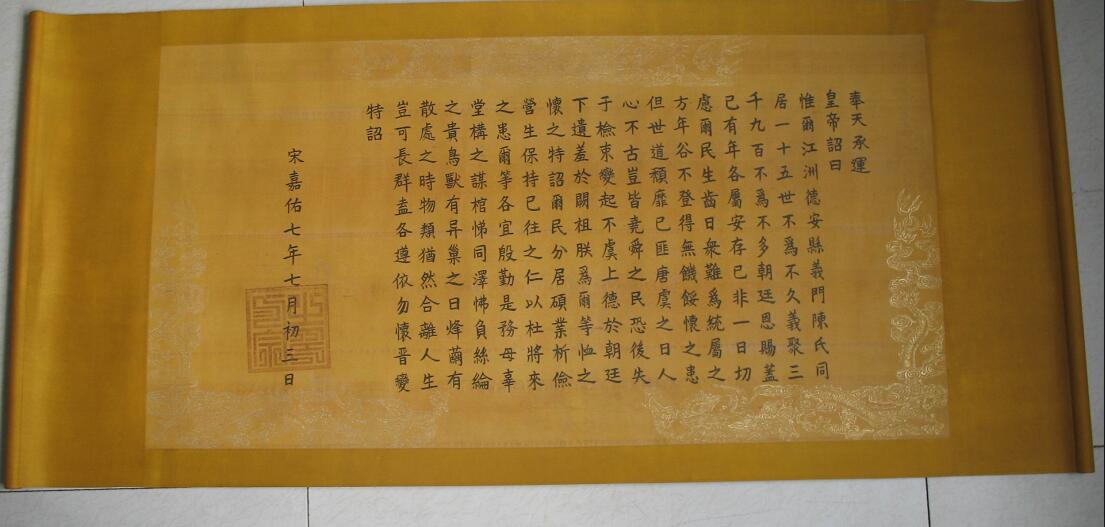 奉天承運
皇帝詔曰
惟爾江洲德安縣義門陳氏同
居一十五世不爲不久義聚三
千九百不爲不多朝廷恩賜蓋
已有年各屬安存已非一日切
慮爾民生齒日衆難爲統屬之
方年谷不登得無饑餒懷之患
但世道頹靡已匪唐虞之日人
心不古豈皆堯舜之民恐後失
于檢束變起不虞上德於朝廷
下遺羞於闕祖朕爲爾等恤之
懷之特詔爾民分居碩業析儉
營生保持已往之仁以杜將來
之患爾等各宜殷勤是務母辜
堂構之謀棺悌同澤怫負絲綸
之貴鳥獸有异巢之日烽蘭有
散處之時物類猶然合離人生
豈可長群盍各遵依勿懷晋變
特詔
宋嘉佑七年七月初三日